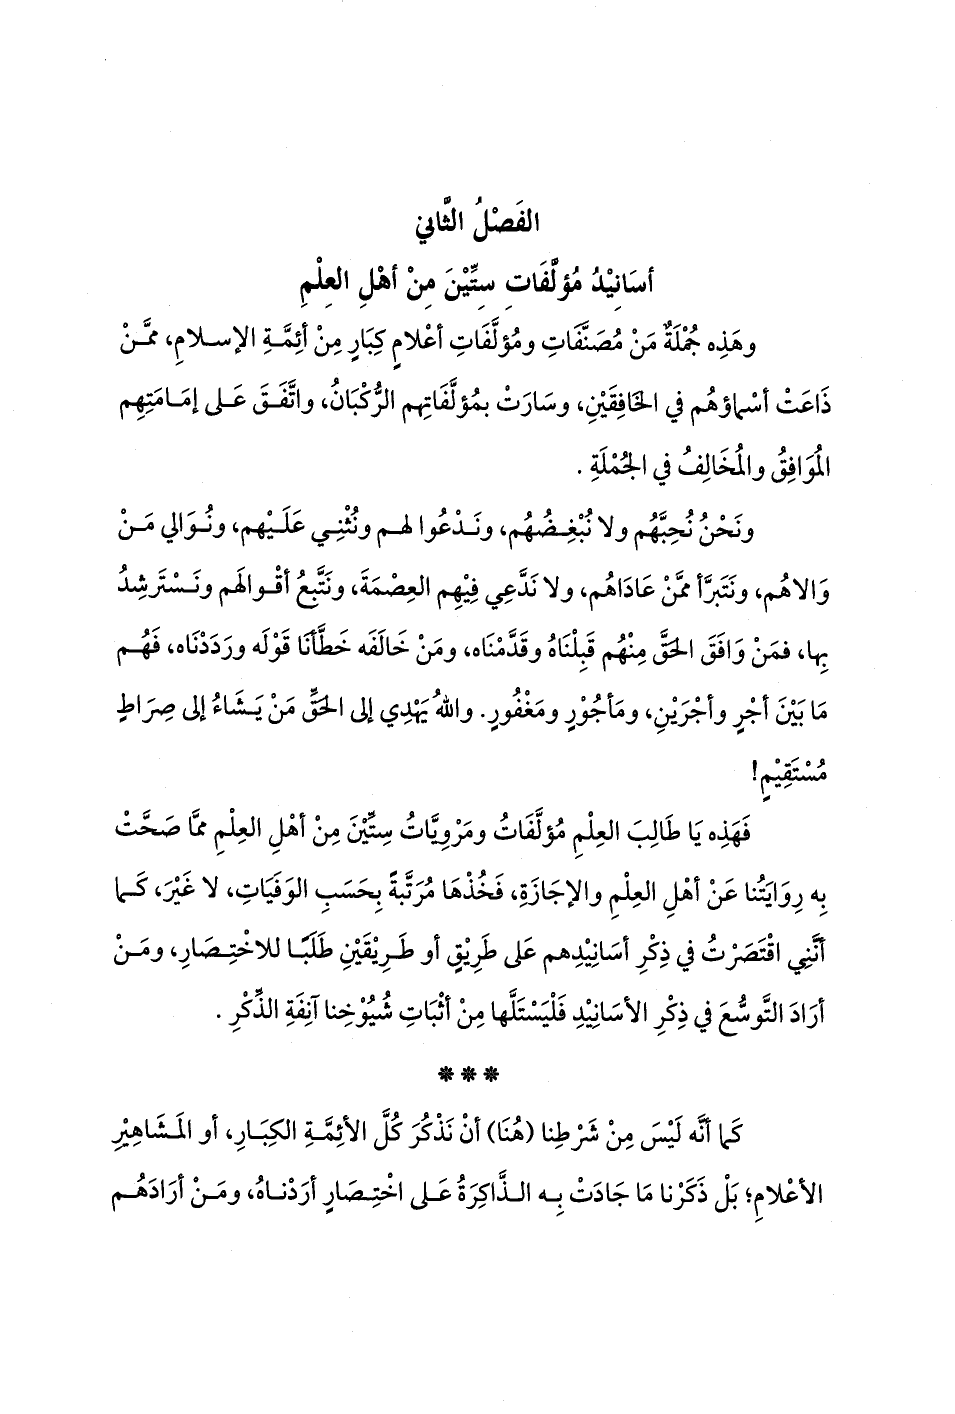 الفَصْلُ الثَّاني
أسَانِيْدُ مُؤلَّفَاتِ ستِّيْنَ مِنْ أهْلِ العِلْمِ
وهَذِه جُمْلَةٌ مَنْ مُصَنَّفَاتِ ومُؤلَّفَاتِ أعْلامٍ كِبَارٍ مِنْ أئِمَّةِ الإسلامِ، ممَّنْ
ذَاعَتْ أسْماؤهُم في الخَافِقَيْنِ، وسَارَتْ بمُؤلَّفَاتِهم الرُّكْبَانُ، واتَّفَقَ عَلى إمَامَتِهِم
المُوَافِقُ والمُخَالِفُ في الجُمْلَةِ .
ونَحْنُ نُحِبَّهُم ولا نُبْغِضُهُم، ونَدْعُوا لهم ونُثْنِي عَلَيْهم، ونُوَالي مَنْ
وَالاهُم، ونَتَبرَّأ ممَّنْ عَادَاهُم، ولا نَدَّعِي فِيْهِم العِصْمَةَ، ونَتَّبِعُ أقْوالَهم ونَسْتَرشِدُ
بِها، فمَنْ وَافَقَ الحَقَّ مِنْهُم قَبِلْنَاهُ وقَدَّمْنَاه، ومَنْ خَالَفَه خَطَّأنَا قَوْلَه ورَدَدْنَاه، فَهُم
مَا بَيْنَ أجْرٍ وأجْرَيْنِ، ومَأجُوْرٍ ومَغْفُورٍ. واللهُ يَهْدِي إلى الحَقِّ مَنْ يَشَاءُ إلى صِرَاطٍ
مُسْتَقِيْمٍ!
فَهَذِه يَا طَالِبَ العِلْمِ مُؤلَّفَاتُ ومَرْوِيَّاتُ سِتِّيْنَ مِنْ أهْلِ العِلْمِ ممَّا صَحَّتْ
بِه رِوَايَتُنا عَنْ أهْلِ العِلْمِ والإجَازَةِ، فَخُذْهَا مُرَتَّبَةً بِحَسَبِ الوَفَيَاتِ، لا غَيْرَ، كَما
أنَّنِي اقْتَصَرْتُ في ذِكْرِ أسَانِيْدِهم عَلى طَرِيْقٍ أو طَرِيْقَيْنِ طَلَبًا للاخْتِصَارِ، ومَنْ
أرَادَ التَّوسُّعَ في ذِكْرِ الأسَانِيْدِ فَلْيَسْتَلَّها مِنْ أثْبَاتِ شُيُوْخِنا آنِفَةِ الذِّكْرِ .
***
كَما أنَّه لَيْسَ مِنْ شَرْطِنا (هُنَا) أنْ نَذْكُرَ كُلَّ الأئِمَّةِ الكِبَارِ، أو المَشَاهِيْرِ
الأعْلامِ؛ بَلْ ذَكَرْنا مَا جَادَتْ بِه الذَّاكِرَةُ عَلى اخْتِصَارٍ أرَدْناهُ، ومَنْ أرَادَهُم